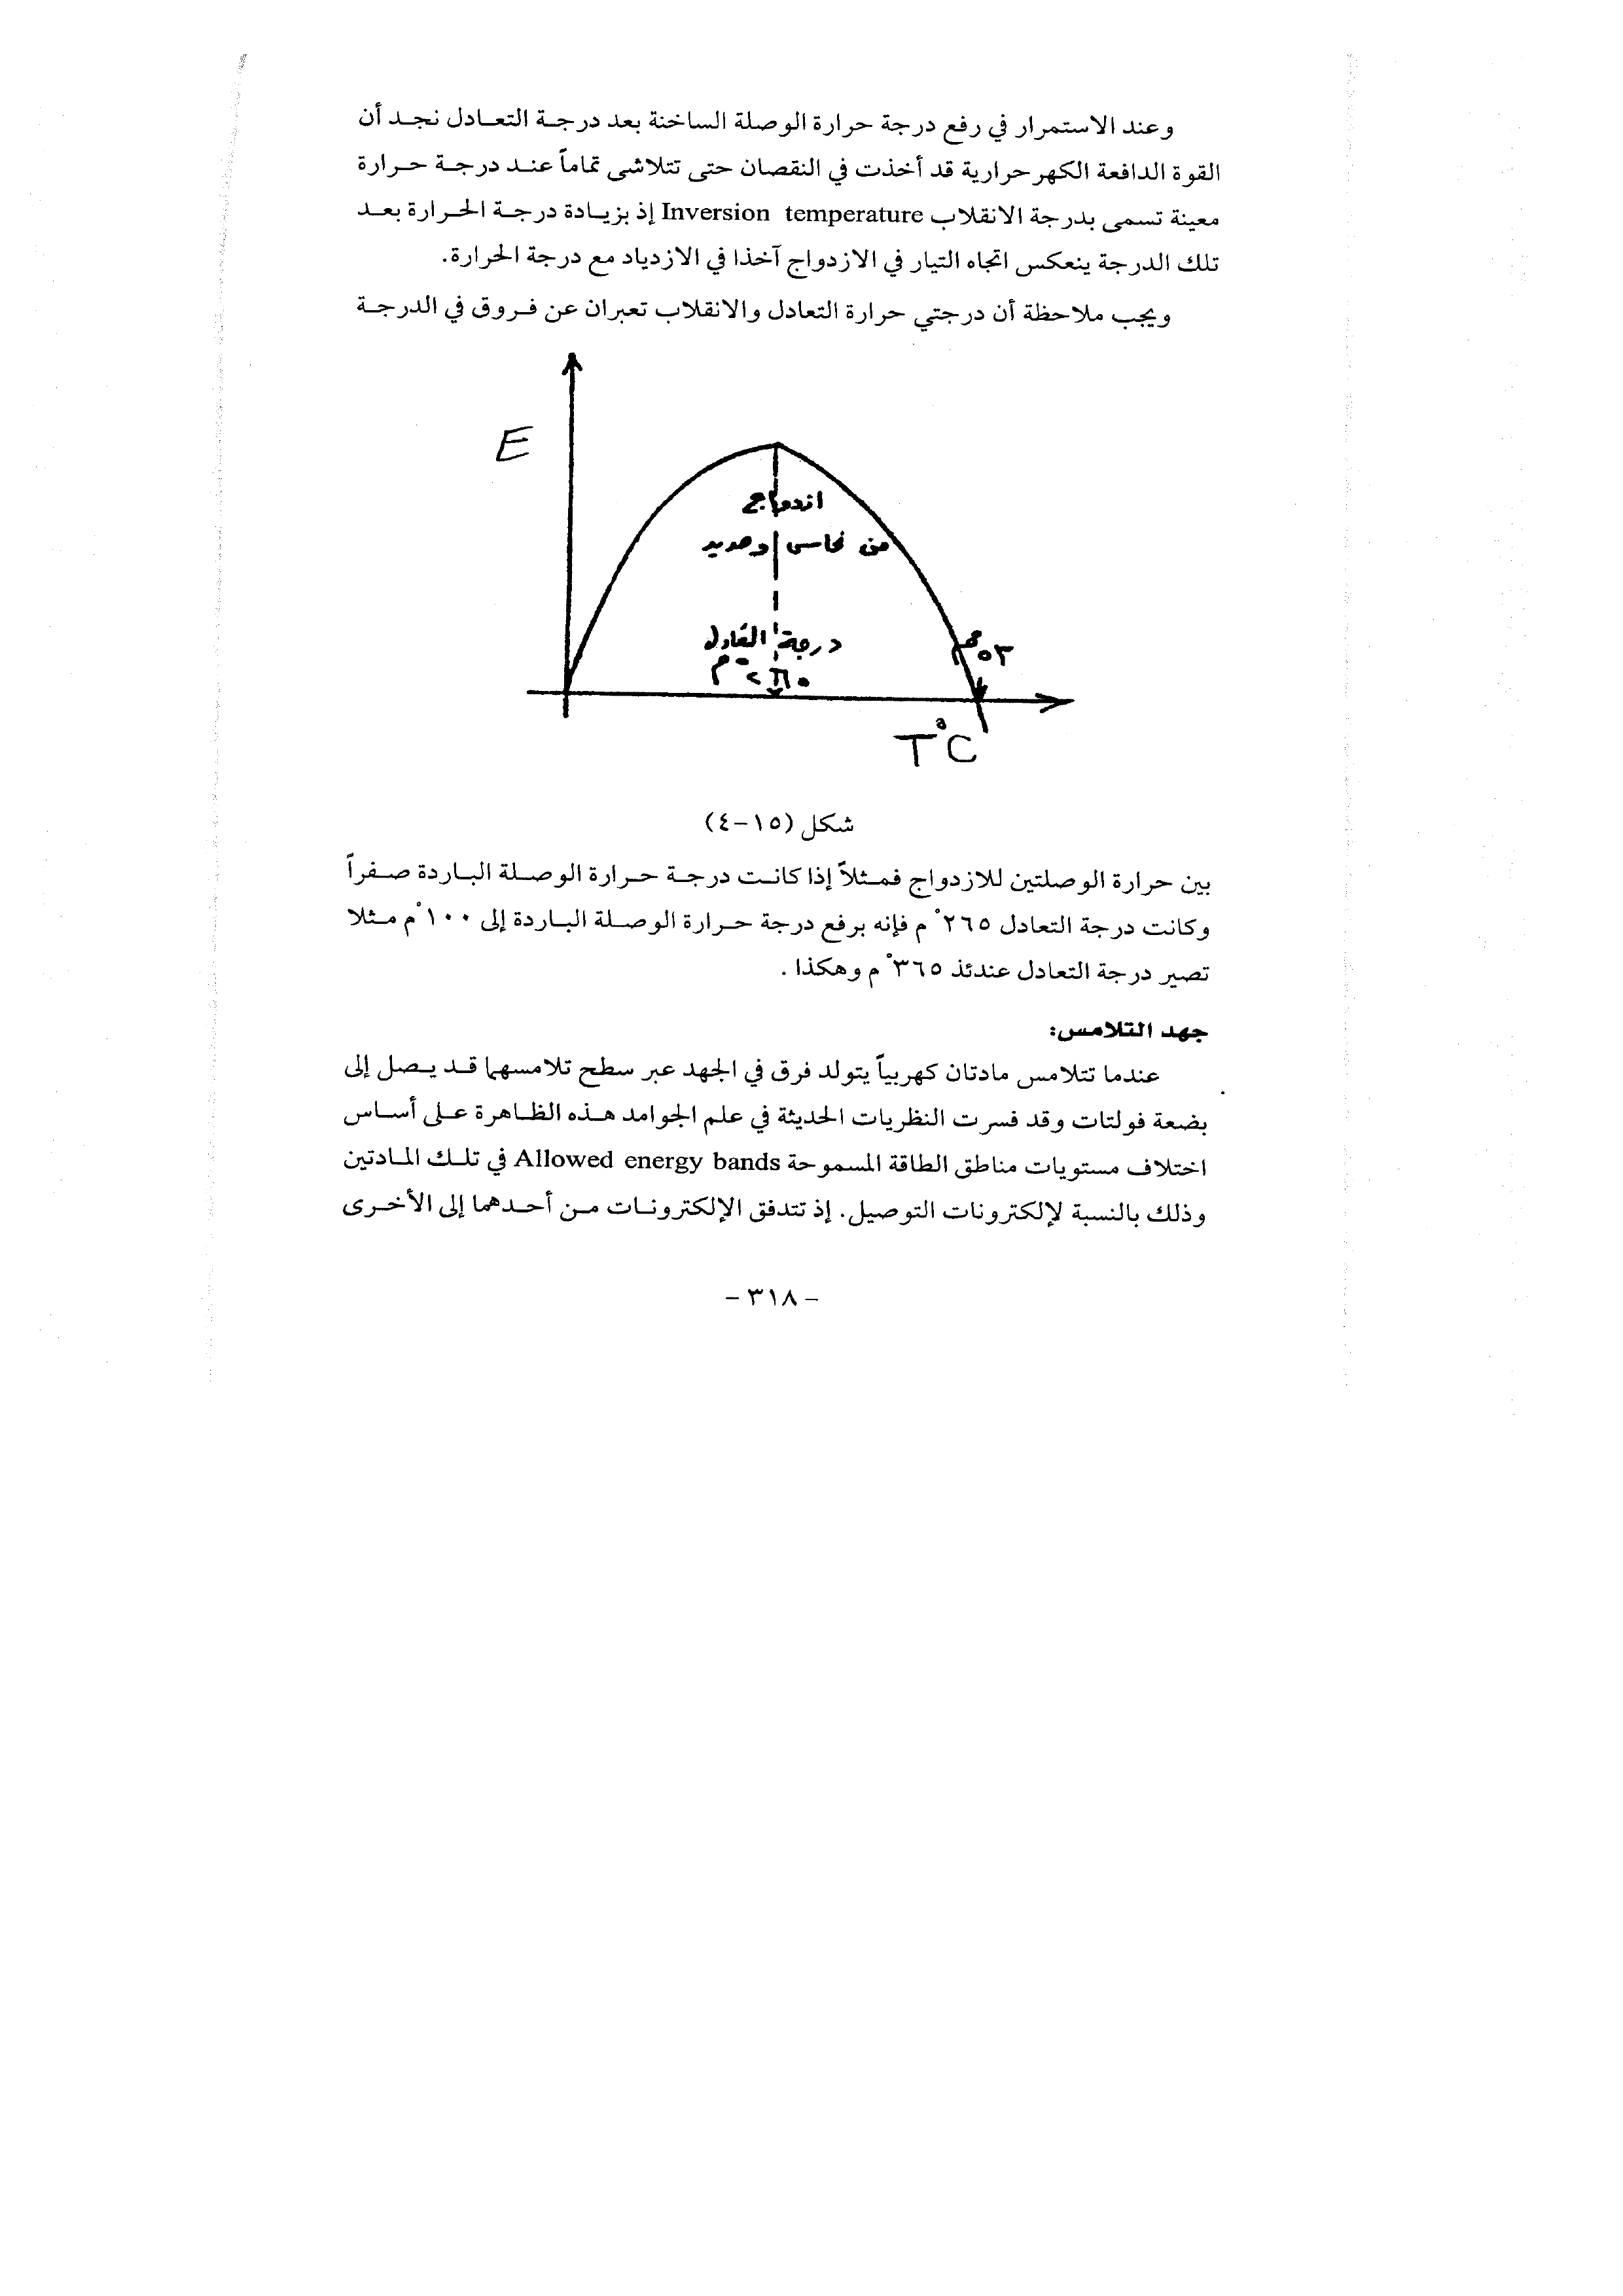 وعند الاستمرار في رفع درجة حرارة الوصلة الساخنة بعد درجة التعادل نجد أن
القوة الدافعة الكهرحرارية قد أخذت في النقصان حتى تتلاشى تماماً عند درجة حرارة
معينة تسمى بدرجة الانقلاب Inversion temperature إذ بزيادة درجة الحرارة بعد
تلك الدرجة ينعكس اتجاه التيار في الازدواج آخذا في الازدياد مع درجة الحرارة.
ويجب ملاحظة أن درجتي حرارة التعادل والانقلاب تعبران عن فروق في الدرجة
E
ازدواج
من نحاس وحديد
درجة التعادل
T°C
شكل (١٥-٤)
بين حرارة الوصلتين للازدواج فمثلاً إذا كانت درجة حرارة الوصلة الباردة صفراً
وكانت درجة التعادل ٢٦٥° م فإنه برفع درجة حرارة الوصلة الباردة إلى ١٠٠°م مثلا
تصير درجة التعادل عندئذ ٣٦٥° م وهكذا .
جهد التلامس:
عندما تتلامس مادتان كهربياً يتولد فرق في الجهد عبر سطح تلامسهما قد يصل إلى
بضعة فولتات وقد فسرت النظريات الحديثة في علم الجوامد هذه الظاهرة على أساس
اختلاف مستويات مناطق الطاقة المسموحة Allowed energy bands في تلك المادتين
وذلك بالنسبة لإلكترونات التوصيل. إذ تتدفق الإلكترونات من أحدهما إلى الأخرى
- ٣١٨ -